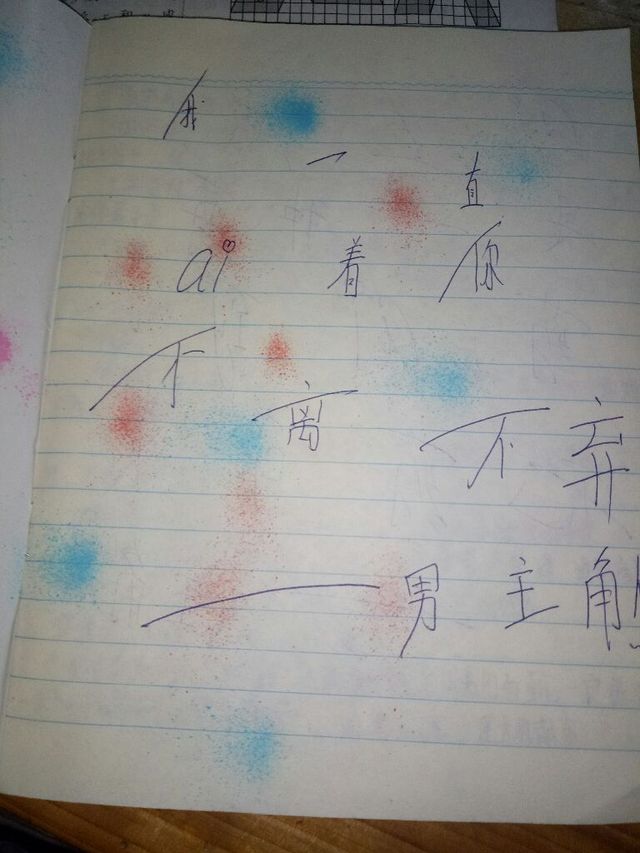 我
一 直
ai 着 你
不 离 不 弃
——男 主 角